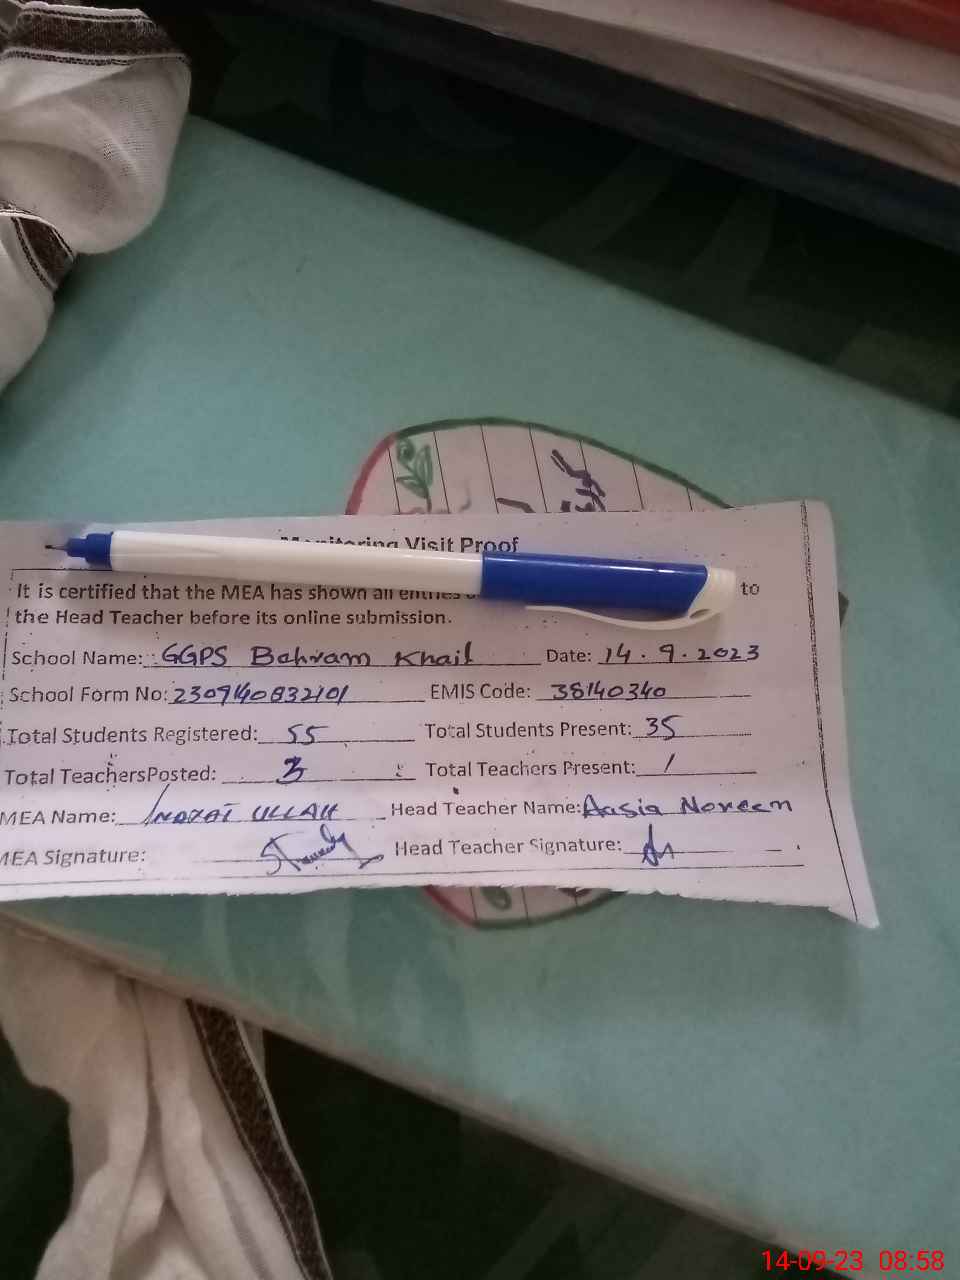 Monitoring Visit Proof
It is certified that the MEA has shown all entries to
the Head Teacher before its online submission.
School Name: GGPS Bahram Khail Date: 14.9.2023
School Form No: 230940832101 EMIS Code: 38140340
Total Students Registered: 55 Total Students Present: 35
Total TeachersPosted: 3 Total Teachers Present: 1
MEA Name: ULLAH Head Teacher Name: Aasia Noreen
MEA Signature: Head Teacher Signature:
14-09-23 08:58